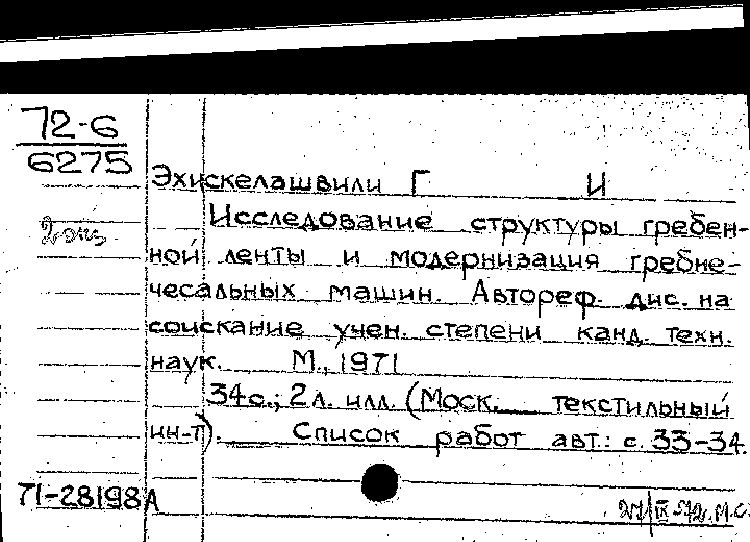 72-6
6275
Эхискелашвили Г И
Исследование структуры гребен-
2 экз
ной ленты и модернизация гребне-
чесальных машин. Автореф. дис. на
соискание учен. степени канд. техн.
наук. М., 1971
34 с.; 2 л. илл. (Моск. текстильный
ин-т). Список работ авт.: с. 33-34.
71-28198А
27/IX-72. М.С.